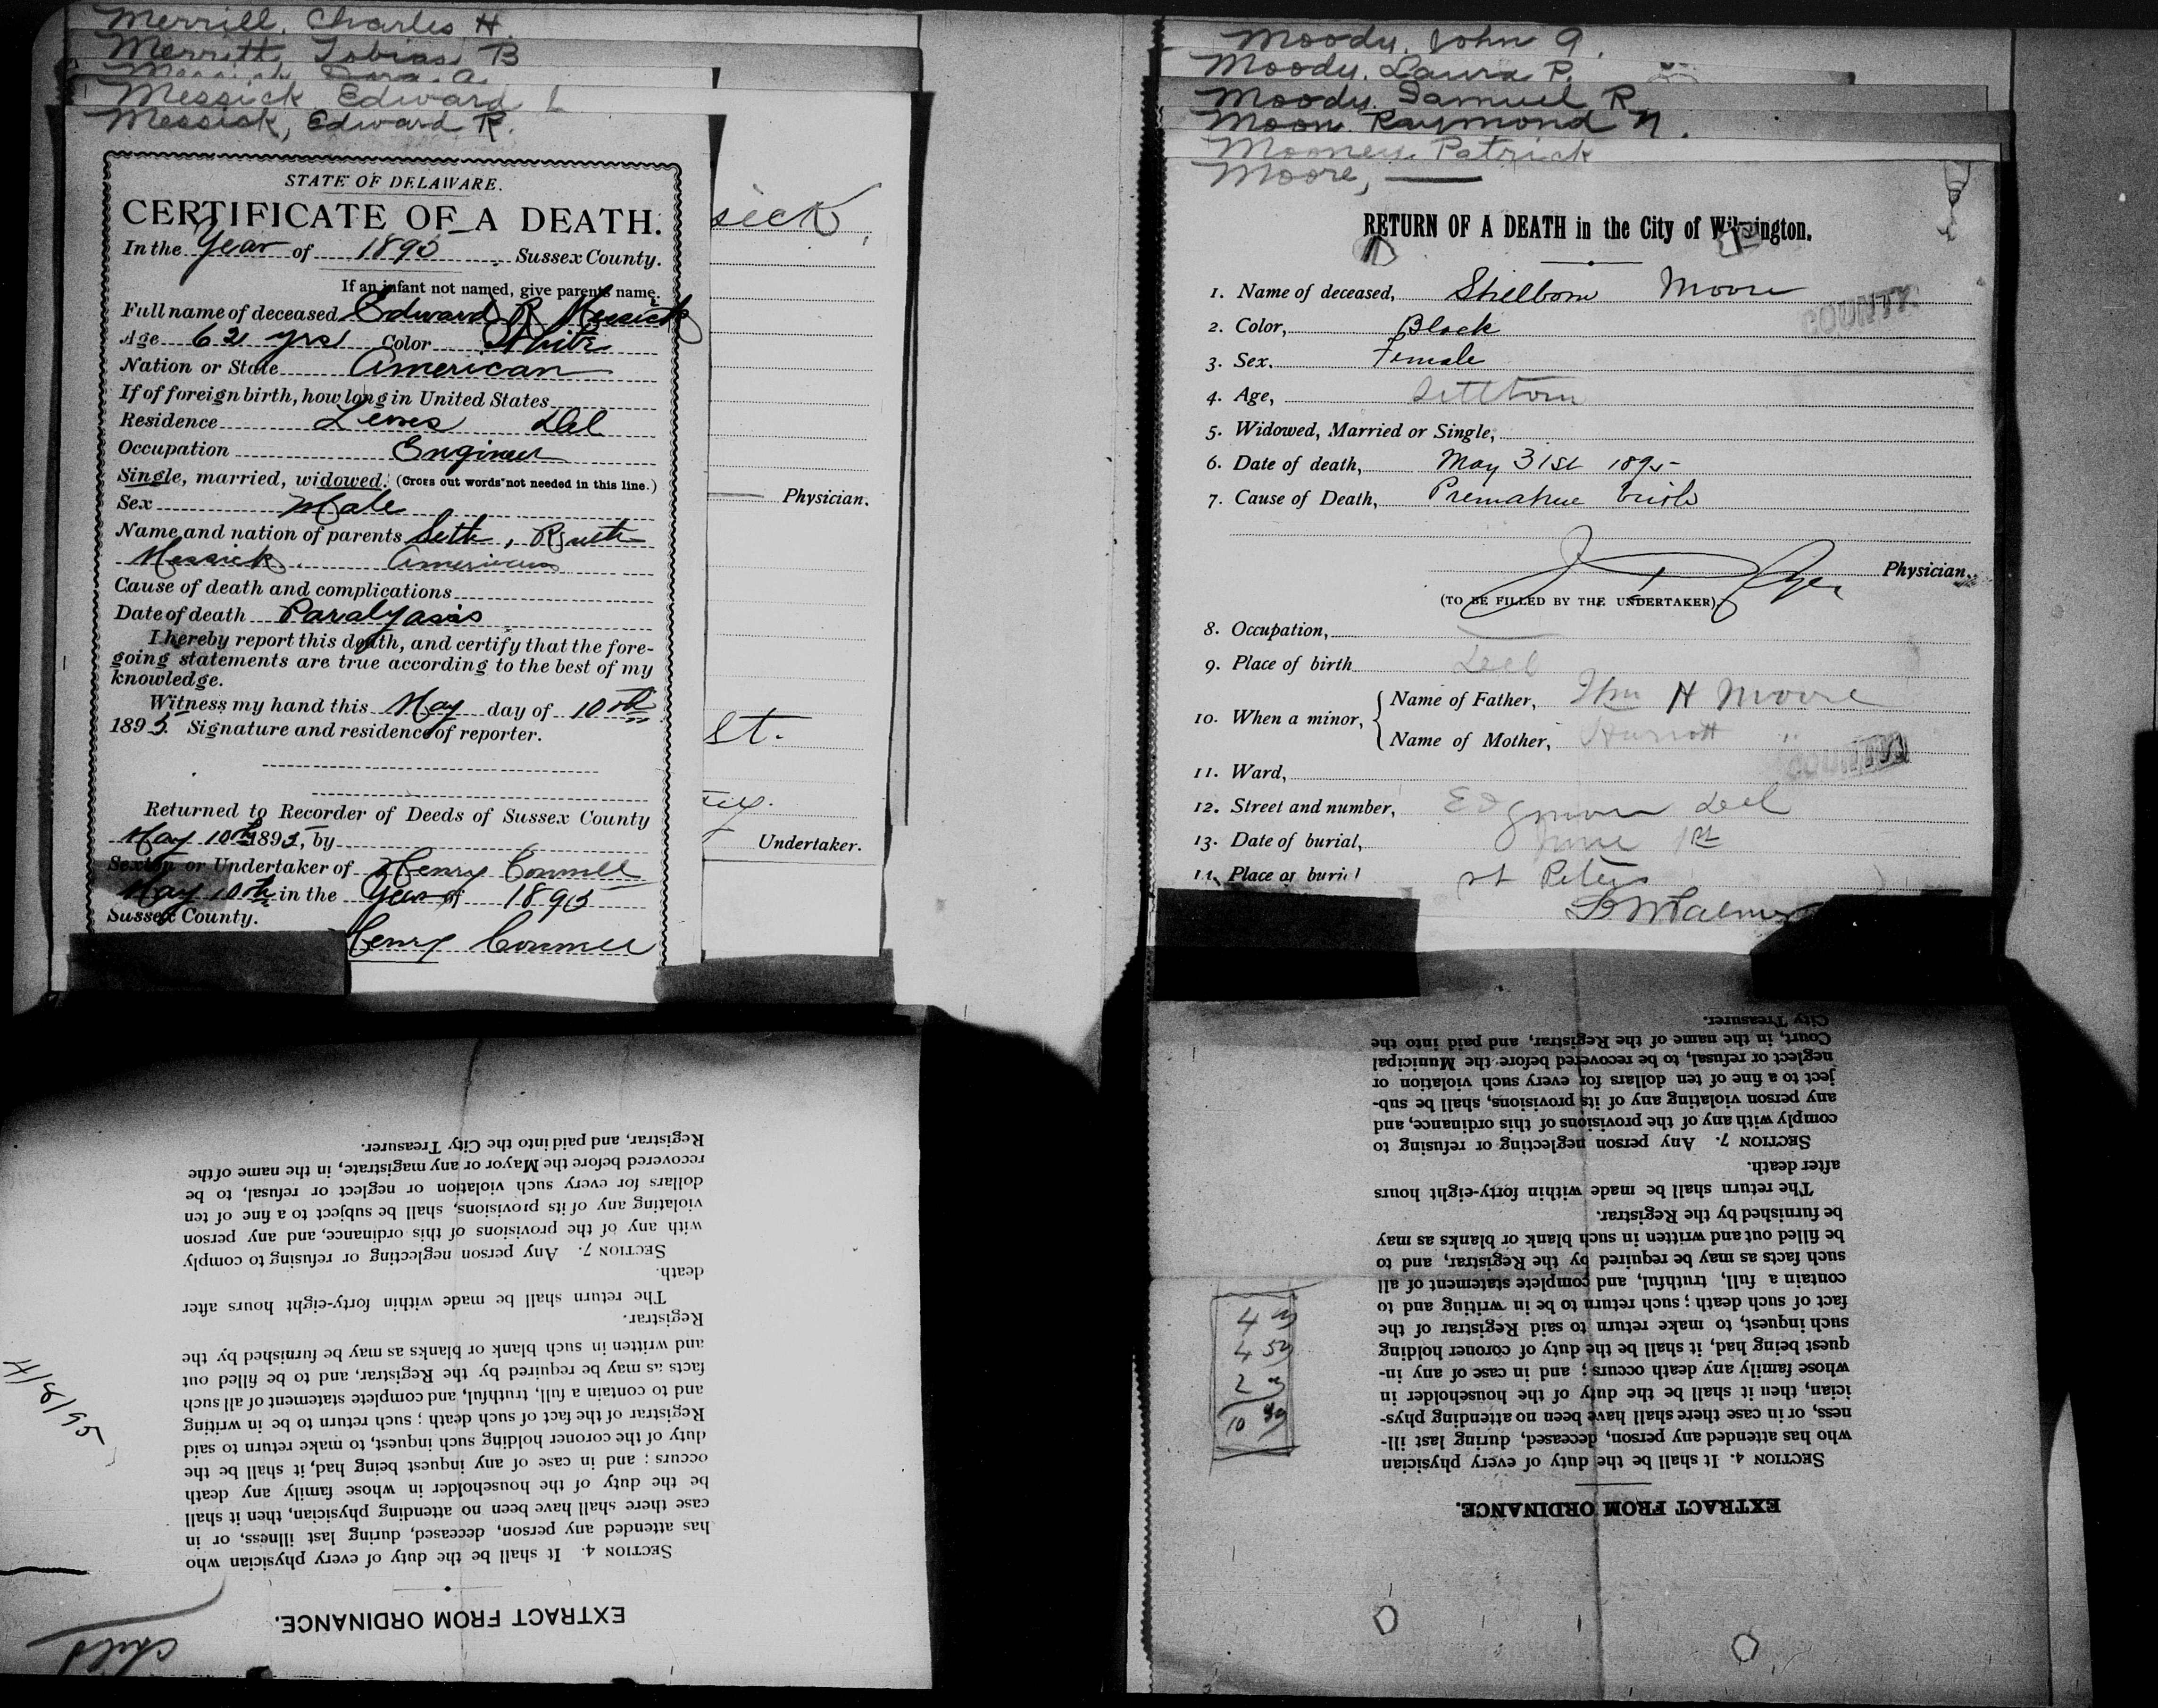 Merrill, Charles H.
Merritt, Tobias B
Messick, Dora A.
Messick, Edward L
Messick, Edward R.
STATE OF DELAWARE.
CERTIFICATE OF A DEATH.
In the Year of 1895 Sussex County.
If an infant not named, give parents name.
Full name of deceased Edward R Messick
Age 62 yrs Color White
Nation or State American
If of foreign birth, how long in United States
Residence Lewes Del
Occupation Engineer
Single, married, widowed. (Cross out words not needed in this line.)
Sex Male
Name and nation of parents Seth, Ruth
Messick. American
Cause of death and complications
Date of death Paralyasis
I hereby report this death, and certify that the fore-
going statements are true according to the best of my
knowledge.
Witness my hand this May day of 10th
1895. Signature and residence of reporter.
Returned to Recorder of Deeds of Sussex County
May 10th 1895, by
Sexton or Undertaker of Henry
May 10th in the Year of 1895
Sussex County.
Henry
sick,
Physician.
St.
Undertaker.
Moody, John A.
Moody, Laura P.
Moody, Samuel R.
Moon, Raymond N.
Mooney, Patrick
Moore, —
RETURN OF A DEATH in the City of Wilmington.
1. Name of deceased, Stillborn Moore
COUNTY
2. Color, Black
3. Sex, Female
4. Age, Stillborn
5. Widowed, Married or Single,
6. Date of death, May 31st 1895
7. Cause of Death, Premature birth
Physician.
(TO BE FILLED BY THE UNDERTAKER)
8. Occupation, —
9. Place of birth Del
10. When a minor, { Name of Father, Wm H Moore
Name of Mother, Harriott "
COUNTY
11. Ward,
12. Street and number, Edgmoor Del
13. Date of burial, June 1st
14. Place of burial St Peters
EXTRACT FROM ORDINANCE.
SECTION 4. It shall be the duty of every physician who
has attended any person, deceased, during last illness, or in
case there shall have been no attending physician, then it shall
be the duty of the householder in whose family any death
occurs; and in case of any inquest being had, it shall be the
duty of the coroner holding such inquest, to make return to said
Registrar of the fact of such death; such return to be in writing
and to contain a full, truthful, and complete statement of all such
facts as may be required by the Registrar, and to be filled out
and written in such blank or blanks as may be furnished by the
Registrar.
The return shall be made within forty-eight hours after
death.
SECTION 7. Any person neglecting or refusing to comply
with any of the provisions of this ordinance, and any person
violating any of its provisions, shall be subject to a fine of ten
dollars for every such violation or neglect or refusal, to be
recovered before the Mayor or any magistrate, in the name of the
Registrar, and paid into the City Treasurer.
4/8/95
Child
EXTRACT FROM ORDINANCE.
SECTION 4. It shall be the duty of every physician
who has attended any person, deceased, during last ill-
ness, or in case there shall have been no attending phys-
ician, then it shall be the duty of the householder in
whose family any death occurs; and in case of any in-
quest being had, it shall be the duty of coroner holding
such inquest, to make return to said Registrar of the
fact of such death; such return to be in writing and to
contain a full, truthful, and complete statement of all
such facts as may be required by the Registrar, and to
be filled out and written in such blank or blanks as may
be furnished by the Registrar.
The return shall be made within forty-eight hours
after death.
SECTION 7. Any person neglecting or refusing to
comply with any of the provisions of this ordinance, and
any person violating any of its provisions, shall be sub-
ject to a fine of ten dollars for every such violation or
neglect or refusal, to be recovered before the Municipal
Court, in the name of the Registrar, and paid into the
City Treasurer.